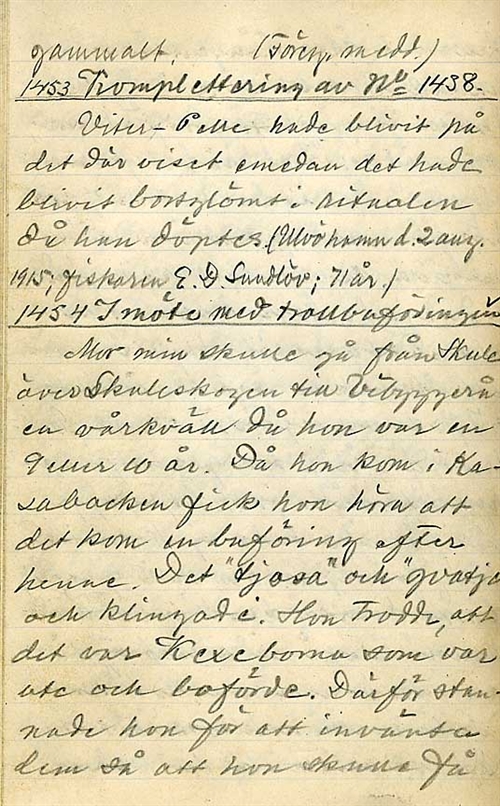 gammalt. (Föreg. medd.)
1453 Komplettering av No 1438.
Viter-Pelle hade blivit på
det där viset emedan det hade
blivit bortglömt i ritualen
då han döptes. (Ulvöhamn d. 2 aug.
1915; fiskaren E. D. Sundlöv; 71 år.)
1454 I möte med trollbuföringen
Mor min skulle gå från Skule
över Skuleskogen till Vibyggerå
en vårkväll då hon var en
9 eller 10 år. Då hon kom i Ka-
sabacken fick hon höra att
det kom en buföring efter
henne. Det "tjosa" och "gvatja"
och klingade. Hon trodde, att
det var Kexeborna som var
ute och buförde. Därför stan-
nade hon för att invänta
dem så att hon skulle få